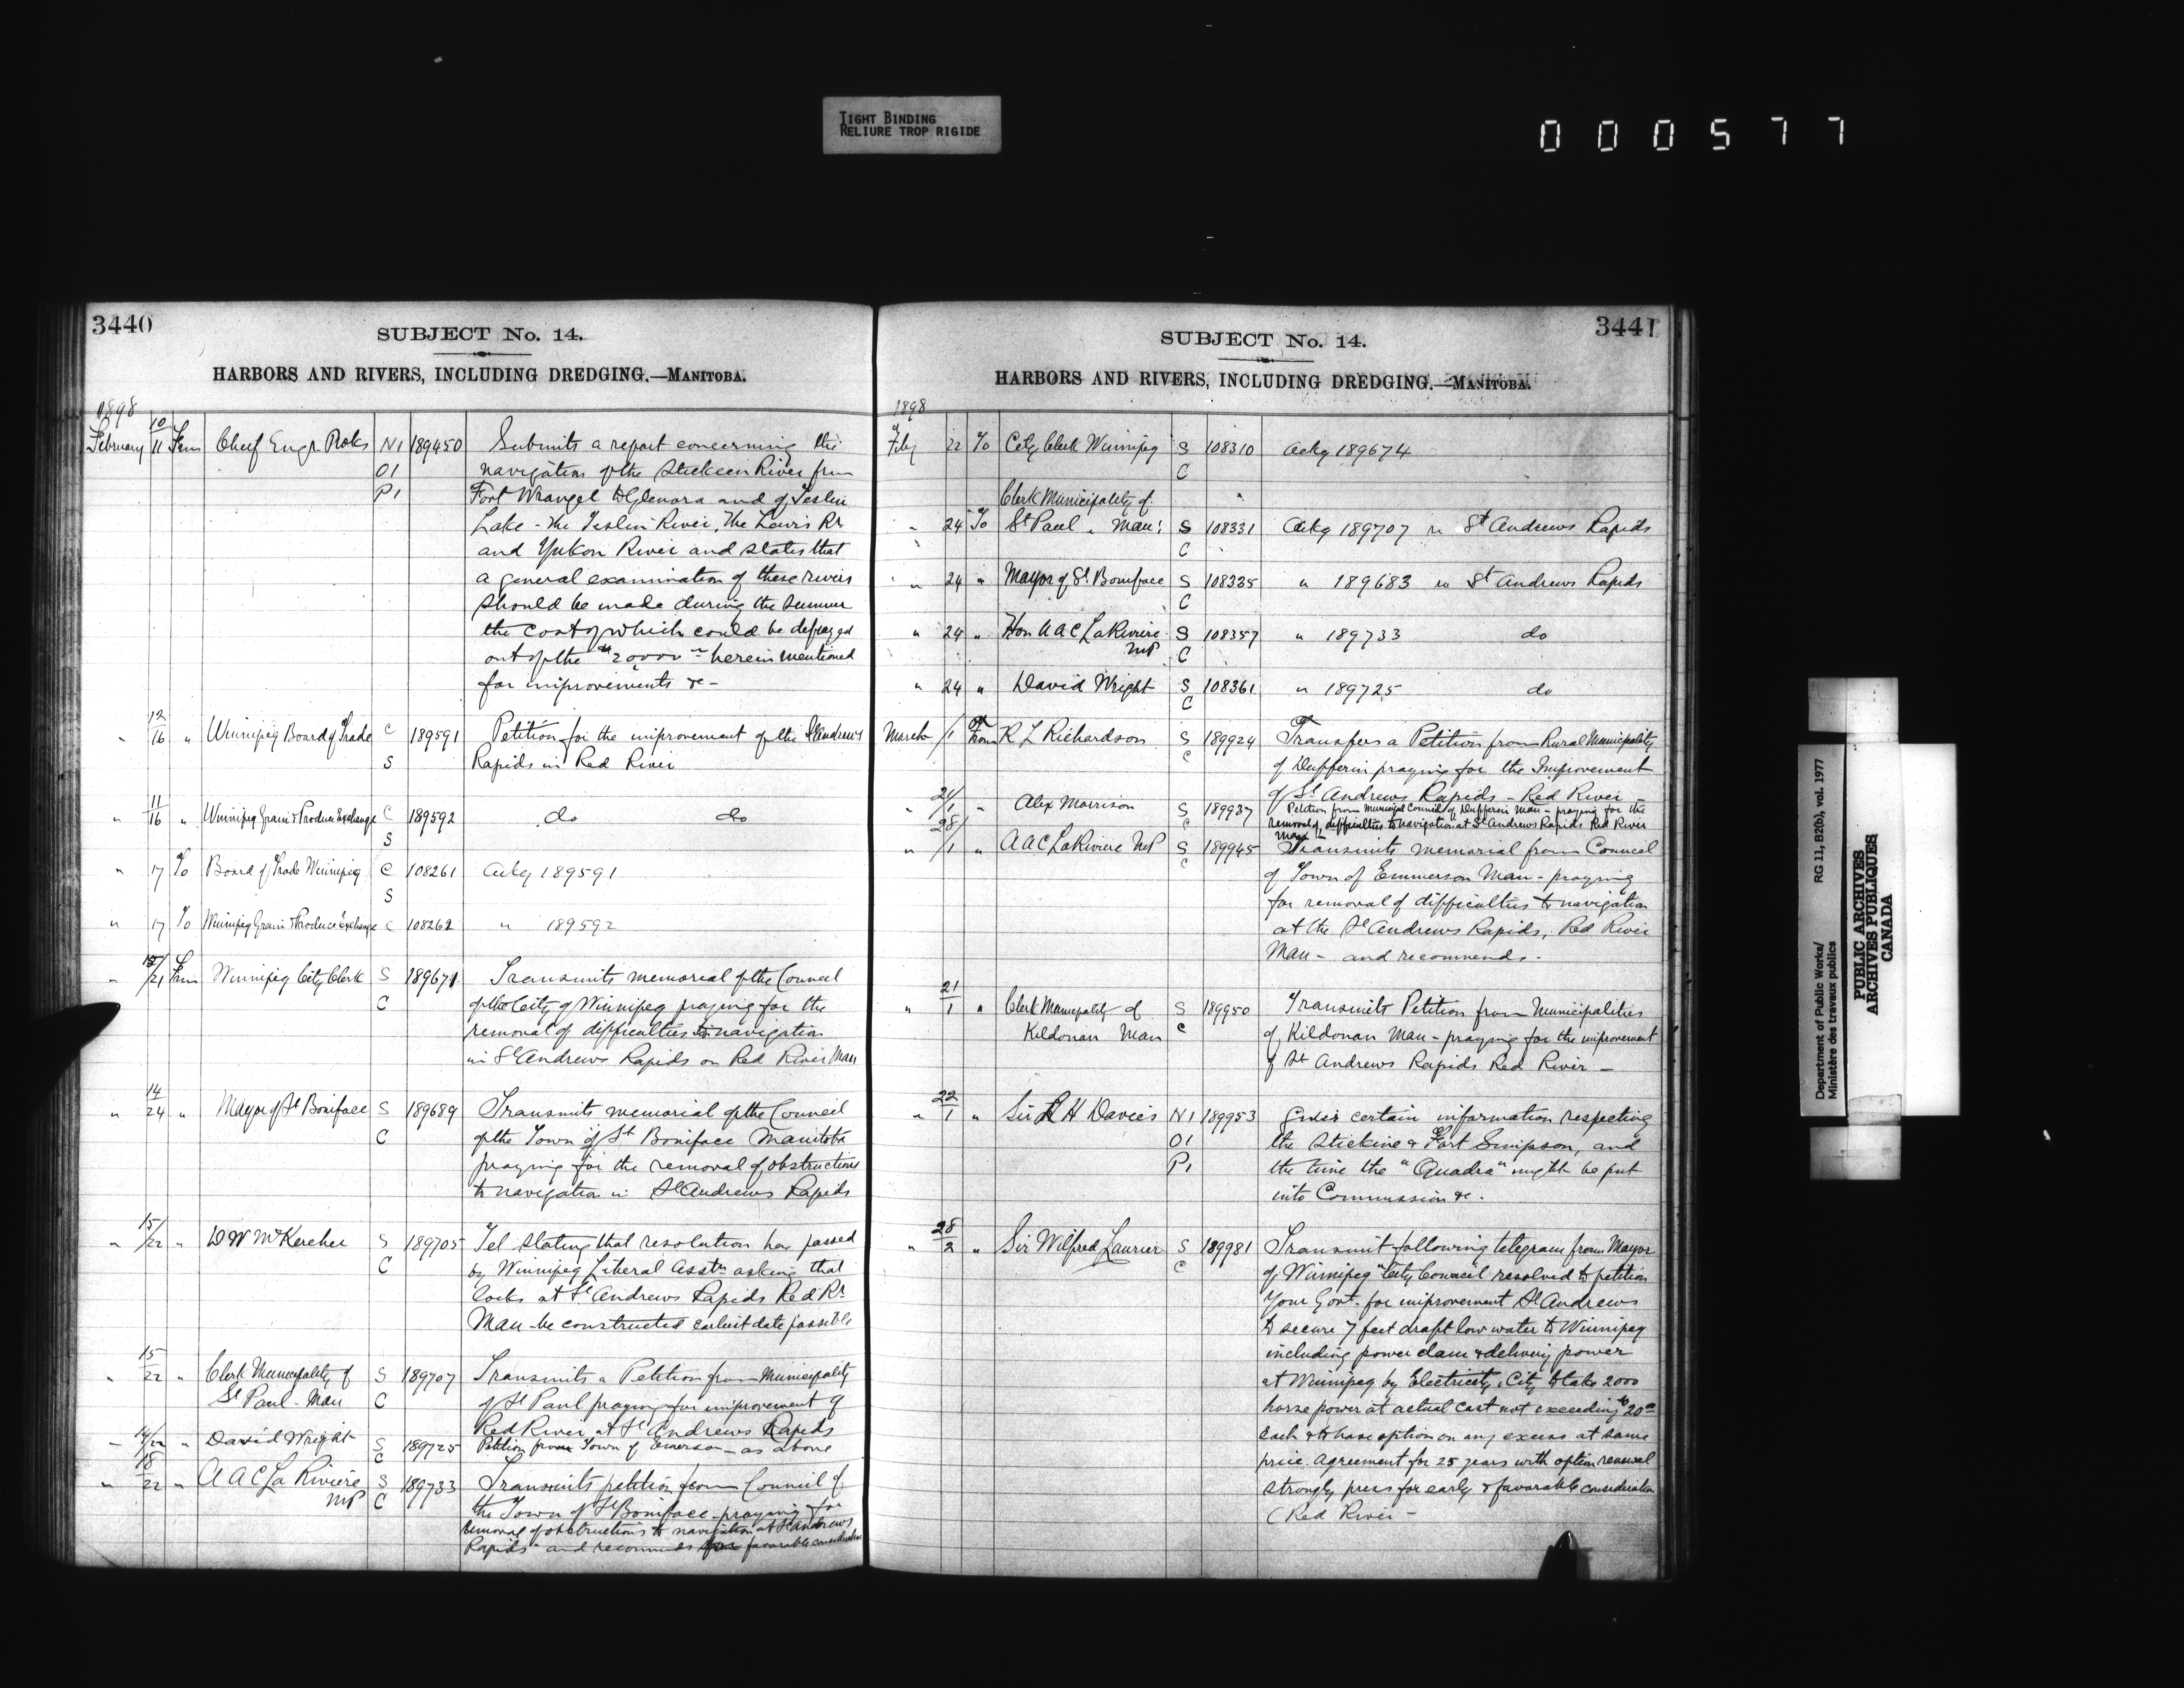 TIGHT BINDING
RELIURE TROP RIGIDE
000577
3440
SUBJECT No. 14.
HARBORS AND RIVERS, INCLUDING DREDGING.—MANITOBA.
1898
February 10/11 From Chief Engr. N1 189450 Submits a report concerning the
O1 navigation of the Stickeen River from
P1 Fort Wrangel to Glenora and of Teslin
Lake - the Teslin River, the Lewis Rr
and Yukon River and states that
a general examination of these rivers
should be made during the summer
the cost of which could be defrayed
out of the herein mentioned
for improvements &c -
" 12/16 " Winnipeg Board of Trade C 189591 Petition for the improvement of the St Andrews
S Rapids in Red River
" 11/16 " Winnipeg Grain & Produce Exchange C 189592 do do
S
" 17 To Board of Trade Winnipeg C 108261 Ackg 189591
S
" 17 To Winnipeg Grain & Produce Exchange C 108262 " 189592
" /21 From Winnipeg City Clerk S 189671 Transmits memorial of the Council
C of the City of Winnipeg praying for the
removal of difficulties to navigation
in St Andrews Rapids on Red River Man
" 14/24 " Mayor of St Boniface S 189689 Transmits memorial of the Council
C of the Town of St Boniface Manitoba
praying for the removal of obstructions
to navigation in St Andrews Rapids
" 15/22 " D W McKercher S 189705 Tel stating that resolution has passed
C by Winnipeg Liberal Asstn asking that
locks at St Andrews Rapids Red Rr
Man - be constructed earliest date possible
" 15/22 " Clerk Municipality of S 189707 Transmits a Petition from Municipality
St Paul - Man C of St Paul praying for improvement of
Red River at St Andrews Rapids
" 14/22 " David Wright S 189725 Petition from Town of Emerson - as above
C
" 18/22 " A A C La Riviere S 189733 Transmits petition from Council of
MP C the Town of St Boniface - praying for
removal of obstructions to navigation at St Andrews
Rapids" and recommends favorable consideration
3441
SUBJECT No. 14.
HARBORS AND RIVERS, INCLUDING DREDGING.—MANITOBA.
1898
Feby 22 To City Clerk Winnipeg S 108310 Ackg 189674
C
Clerk Municipality of
" 24 To St Paul " Man: S 108331 Ackg 189707 re St Andrews Rapids
C
" 24 " Mayor of St. Boniface S 108335 " 189683 re St Andrews Rapids
C
" 24 " Hon A A C LaRiviere S 108357 " 189733 do
MP C
" 24 " David Wright S 108361 " 189725 do
C
March /1 From R L Richardson S 189924 Transfers a Petition from Rural Municipality
C of Dufferin praying for the Improvement
of St Andrews Rapids - Red River
" 21/1 " Alex Morrison S 189937 Petition from Municipal Council of Dufferin Man - praying for the
C removal of difficulties to navigation at St Andrews Rapids Red River
Man
" 28/1 " A A C LaRiviere MP S 189945 Transmits memorial from Council
C of Town of Emmerson Man - praying
for removal of difficulties to navigation
at the St Andrews Rapids, Red River
Man - and recommends -
" 21/1 " Clerk Municipality of S 189950 Transmits Petition from Municipalities
Kildonan Man C of Kildonan Man - praying for the improvement
of St Andrews Rapids Red River -
" 22/1 " Sir L H Davies N1 189953 Gives certain information respecting
O1 the Stickine & Fort Simpson, and
P1 the time the "Quadra" might be put
into Commission &c -
" 28/2 " Sir Wilfred Laurier S 189981 Transmit following telegram from Mayor
C of Winnipeg "City Council resolved to petition
Your Govt. for improvement St Andrews
to secure 7 feet draft low water to Winnipeg
including power dam & delivery power
at Winnipeg by Electricity, City to take 2000
horse power at actual cost not exceeding $20 00
each & to have option on any excess at same
price. Agreement for 25 years with option renewal
strongly press for early & favorable consideration
(Red River -
Department of Public Works/
Ministère des travaux publics
RG 11, B2(b), vol. 1977
PUBLIC ARCHIVES
ARCHIVES PUBLIQUES
CANADA